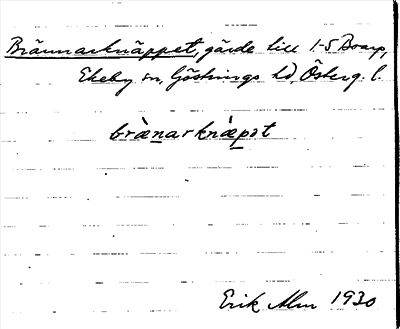 Brännarknäppet, gärde till 1-5 Boarp,
Ekeby sn, Göstrings hd, Österg. l.
bræ̀narknæ̀pət
Erik Alm 1930